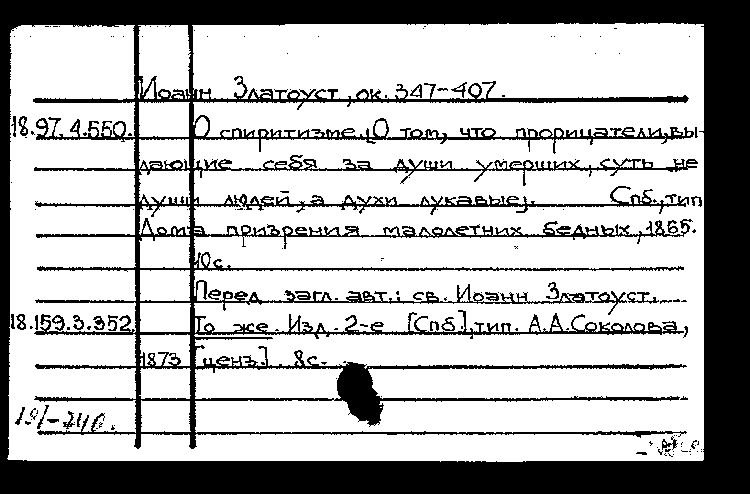 Иоанн Златоуст, ок. 347-407.
18.97.4.550. О спиритизме. [О том, что прорицатели, вы-
дающие себя за души умерших, суть не
души людей, а духи лукавые]. Спб., тип
Дома призрения малолетних бедных, 1865.
10с.
Перед загл. авт.: св. Иоанн Златоуст.
18.159.3.352. То же. Изд. 2-е [Спб.], тип. А.А.Соколова,
1873 [ценз.]. 8с.